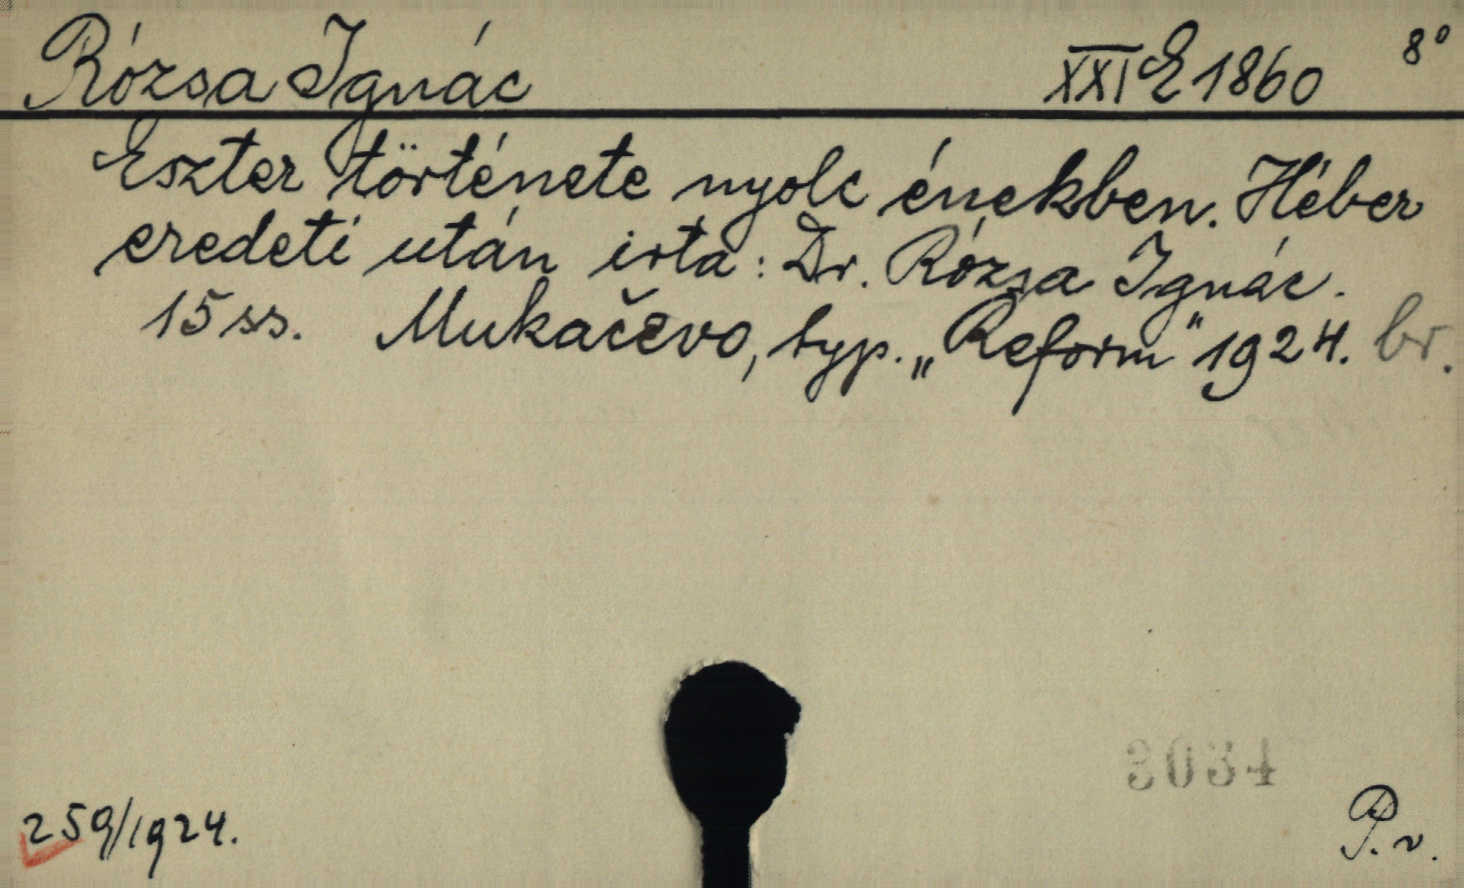 Rózsa Ignác XXI E 1860 8°
Eszter története nyolc énekben. Héber
eredeti után irta: Dr. Rózsa Ignác.
15 ss. Mukačevo, typ. „Reform" 1924. br.
259/1924.
P. v.